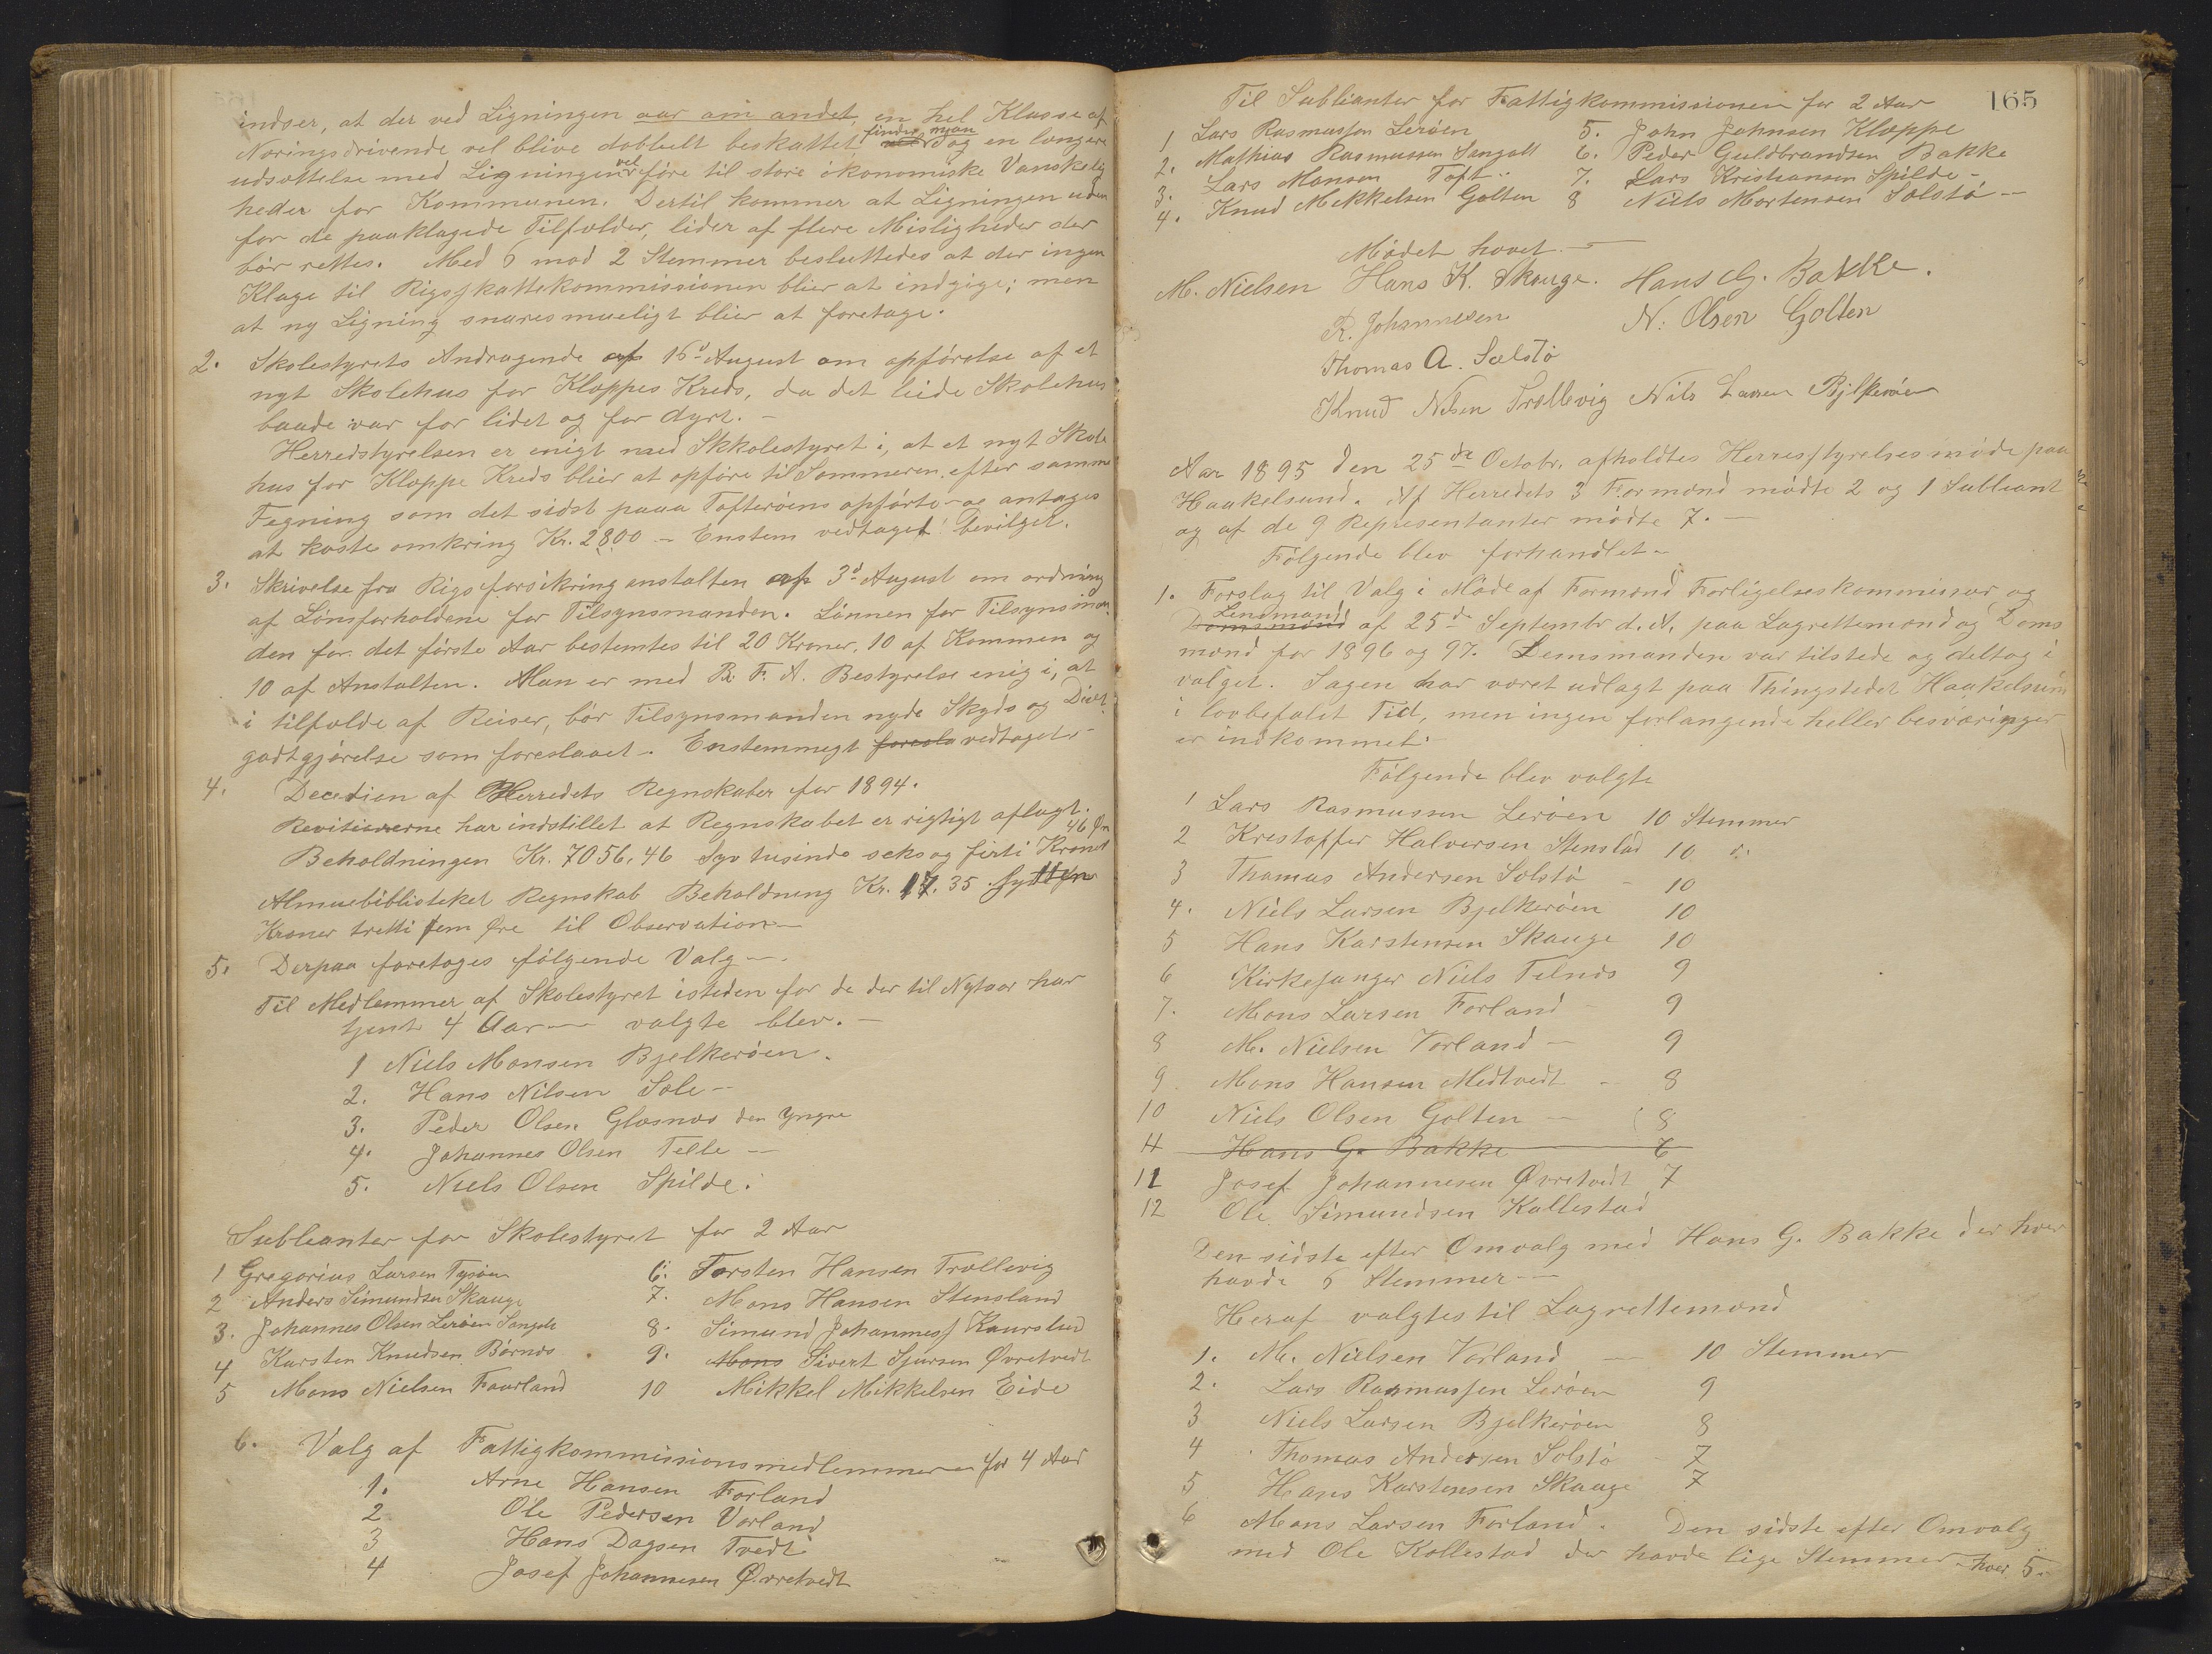 indser, at der ved Ligningen aar om andet, en hel Klasse af
Næringsdrivende vel blive dobbelt beskattet finder man og en længere
udsættelse med Ligningen vel före til store ökonomiske Vanskelig
heder for Kommunen. Dertil kommer at Ligningen uden
for de paaklagede Tilfælder, lider af flere Misligheder der
bör rettes. Med 6 mod 2 Stemmer besluttedes at der ingen
Klage til Rigsskattekommissionen blier at indgige; men
at ny Ligning snaresmueligt blier at foretage.
2. Skolestyrets Andragende af 16d August om opförelse af et
nyt Skolehus for Kloppes Kreds, da det leide Skolehus
baade var for lidet og for dyrt. —
Herredstyrelsen er enigt med Skkolestyret i, at et nyt Skole
hus for Kloppe Kreds blier at opföre til Sommeren, efter samme
Tegning som det sidst paaa Tofteröens opförte — og antages
at koste omkring Kr. 2800 — Enstem vedtaget! Bevilget.
3. Skrivelse fra Rigsforsikringanstalten af 3d August om ordning
af Lönsforholdene for Tilsynsmanden. Lönnen for Tilsynsmæn
den for det förste Aar bestemtes til 20 Kroner, 10 af Kommen og
10 af Anstalten. Man er med R. F. A. Bestyrelse enig i, at
i tilfælde af Reiser, bör Tilsynsmanden nyde Skyds og Diæt
godtgjörelse som foreslaaet. Enstemmegt foresla vedtaget —
4. Decedien af Herredets Regnskaber for 1894.
Revisiorerne har indstillet at Regnskabet er rigtigt aflagt.
Beholdningen Kr. 7056,46 Syv tusinde seks og firti Kroner 46 Øre
Almuebiblioteket Regnskab Beholdning Kr. 17.35 Sytten
Kroner tretti fem Øre til Observation —
5. Derpaa foretoges fölgende Valg —
Til Medlemmer af Skolestyret isteden for de der til Nytaar har
tjent 4 Aar — valgte blev. —
1 Niels Monsen Bjelkeröen.
2. Hans Nilsen Sele —
3. Peder Olsen Glæsnæs den Yngre
4. Johannes Olsen Telle —
5. Niels Olsen Spilde.
Subleanter for Skolestyret for 2 Aar
1 Gregorius Larsen Tysöen
2 Anders Simundsen Skauge
3. Johannes Olsen Leröen Sangolt
4 Karsten Knudsen Börnæs
5 Mons Nielsen Faurland
6. Torsten Hansen Trællevig
7. Mons Hansen Stensland
8. Simund Johanness Kaursland
9. Mons Sivert Sjursen Øvretvedt
10 Mikkel Mikkelsen Eide
6. Valg af Fattigkommissionsmedlemmer — for 4 Aar
1. Arne Hansen Forland
2 Ole Pedersen Vorland
3 Hans Dagsen Tvedt
4 Josef Johannesen Øvretvedt
165
Til Sublianter for Fattigkommissionen for 2 Aar
1 Lars Rasmussen Leröen
2. Mathias Rasmussen Sangolt
3. Lars Monsen Toft
4. Knud Mekkelsen Golten
5. John Johnsen Kloppe
6. Peder Guldbrandsen Bakke
7. Lars Kristiansen Spilde —
8 Niels Mortensen Solstö —
Mödet hævet —
M. Nielsen Hans K. Skauge. Hans G. Bakke.
R. Johannesen N. Olsen Golten
Thomas A. Sælstö
Knud Nilsen Trollevig Nils Larsen Bjelkeröen
Aar 1895 den 25de Octobr. afholdtes Herresstyrelsesmöde paa
Haakelsund. Af Herredets 3 Formænd mödte 2 og 1 Subleant
og af de 9 Representanter mödte 7. —
Fölgende blev forhandlet —
1. Forslag til Valg i Möde af Formænd Forligelseskommissær og
Domsmænd Lensmand af 25de Septembr d. A. paa Lagrettemænd og Doms
mænd for 1896 og 97. Lemsmanden var tilstede og deltog i
valget. Sagen har været udlagt paa Thingstedet Haakelsun
i lovbefalet Tid, men ingen forlangende heller besværinger
er indkommet.
Fölgende blev valgte
1 Lars Rasmussen Leröen 10 Stemmer
2 Krestoffer Halversen Stensland 10 d.
3 Thomas Andersen Solstö — 10
4. Niels Larsen Bjelkeröen 10
5 Hans Karstensen Skauge 10
6 Kirkesanger Niels Telnæs 9
7. Mons Larsen Forland — 9
8 M. Nielsen Vorland — 9
9. Mons Hansen Midtvedt — 8
10 Niels Olsen Golten — 8
11 Hans G. Bakke 6
11 Josef Johannesen Øvretvedt 7
12 Ole Simundsen Kallestad
Den sidste efter Omvalg med Hans G. Bakke der hver
havde 6 Stemmer —
Heraf valgtes til Lagrettemænd
1. M. Nielsen Vorland — 10 Stemmer
2. Lars Rasmussen Leröen 9
3 Niels Larsen Bjelkeröen 8
4 Thomas Andersen Solstö 7
5 Hans Karstensen Skauge 7
6 Mons Larsen Forland. Den sidste efter Omvalg
med Ole Kollestad der havde lige Stemmer — hver 5.